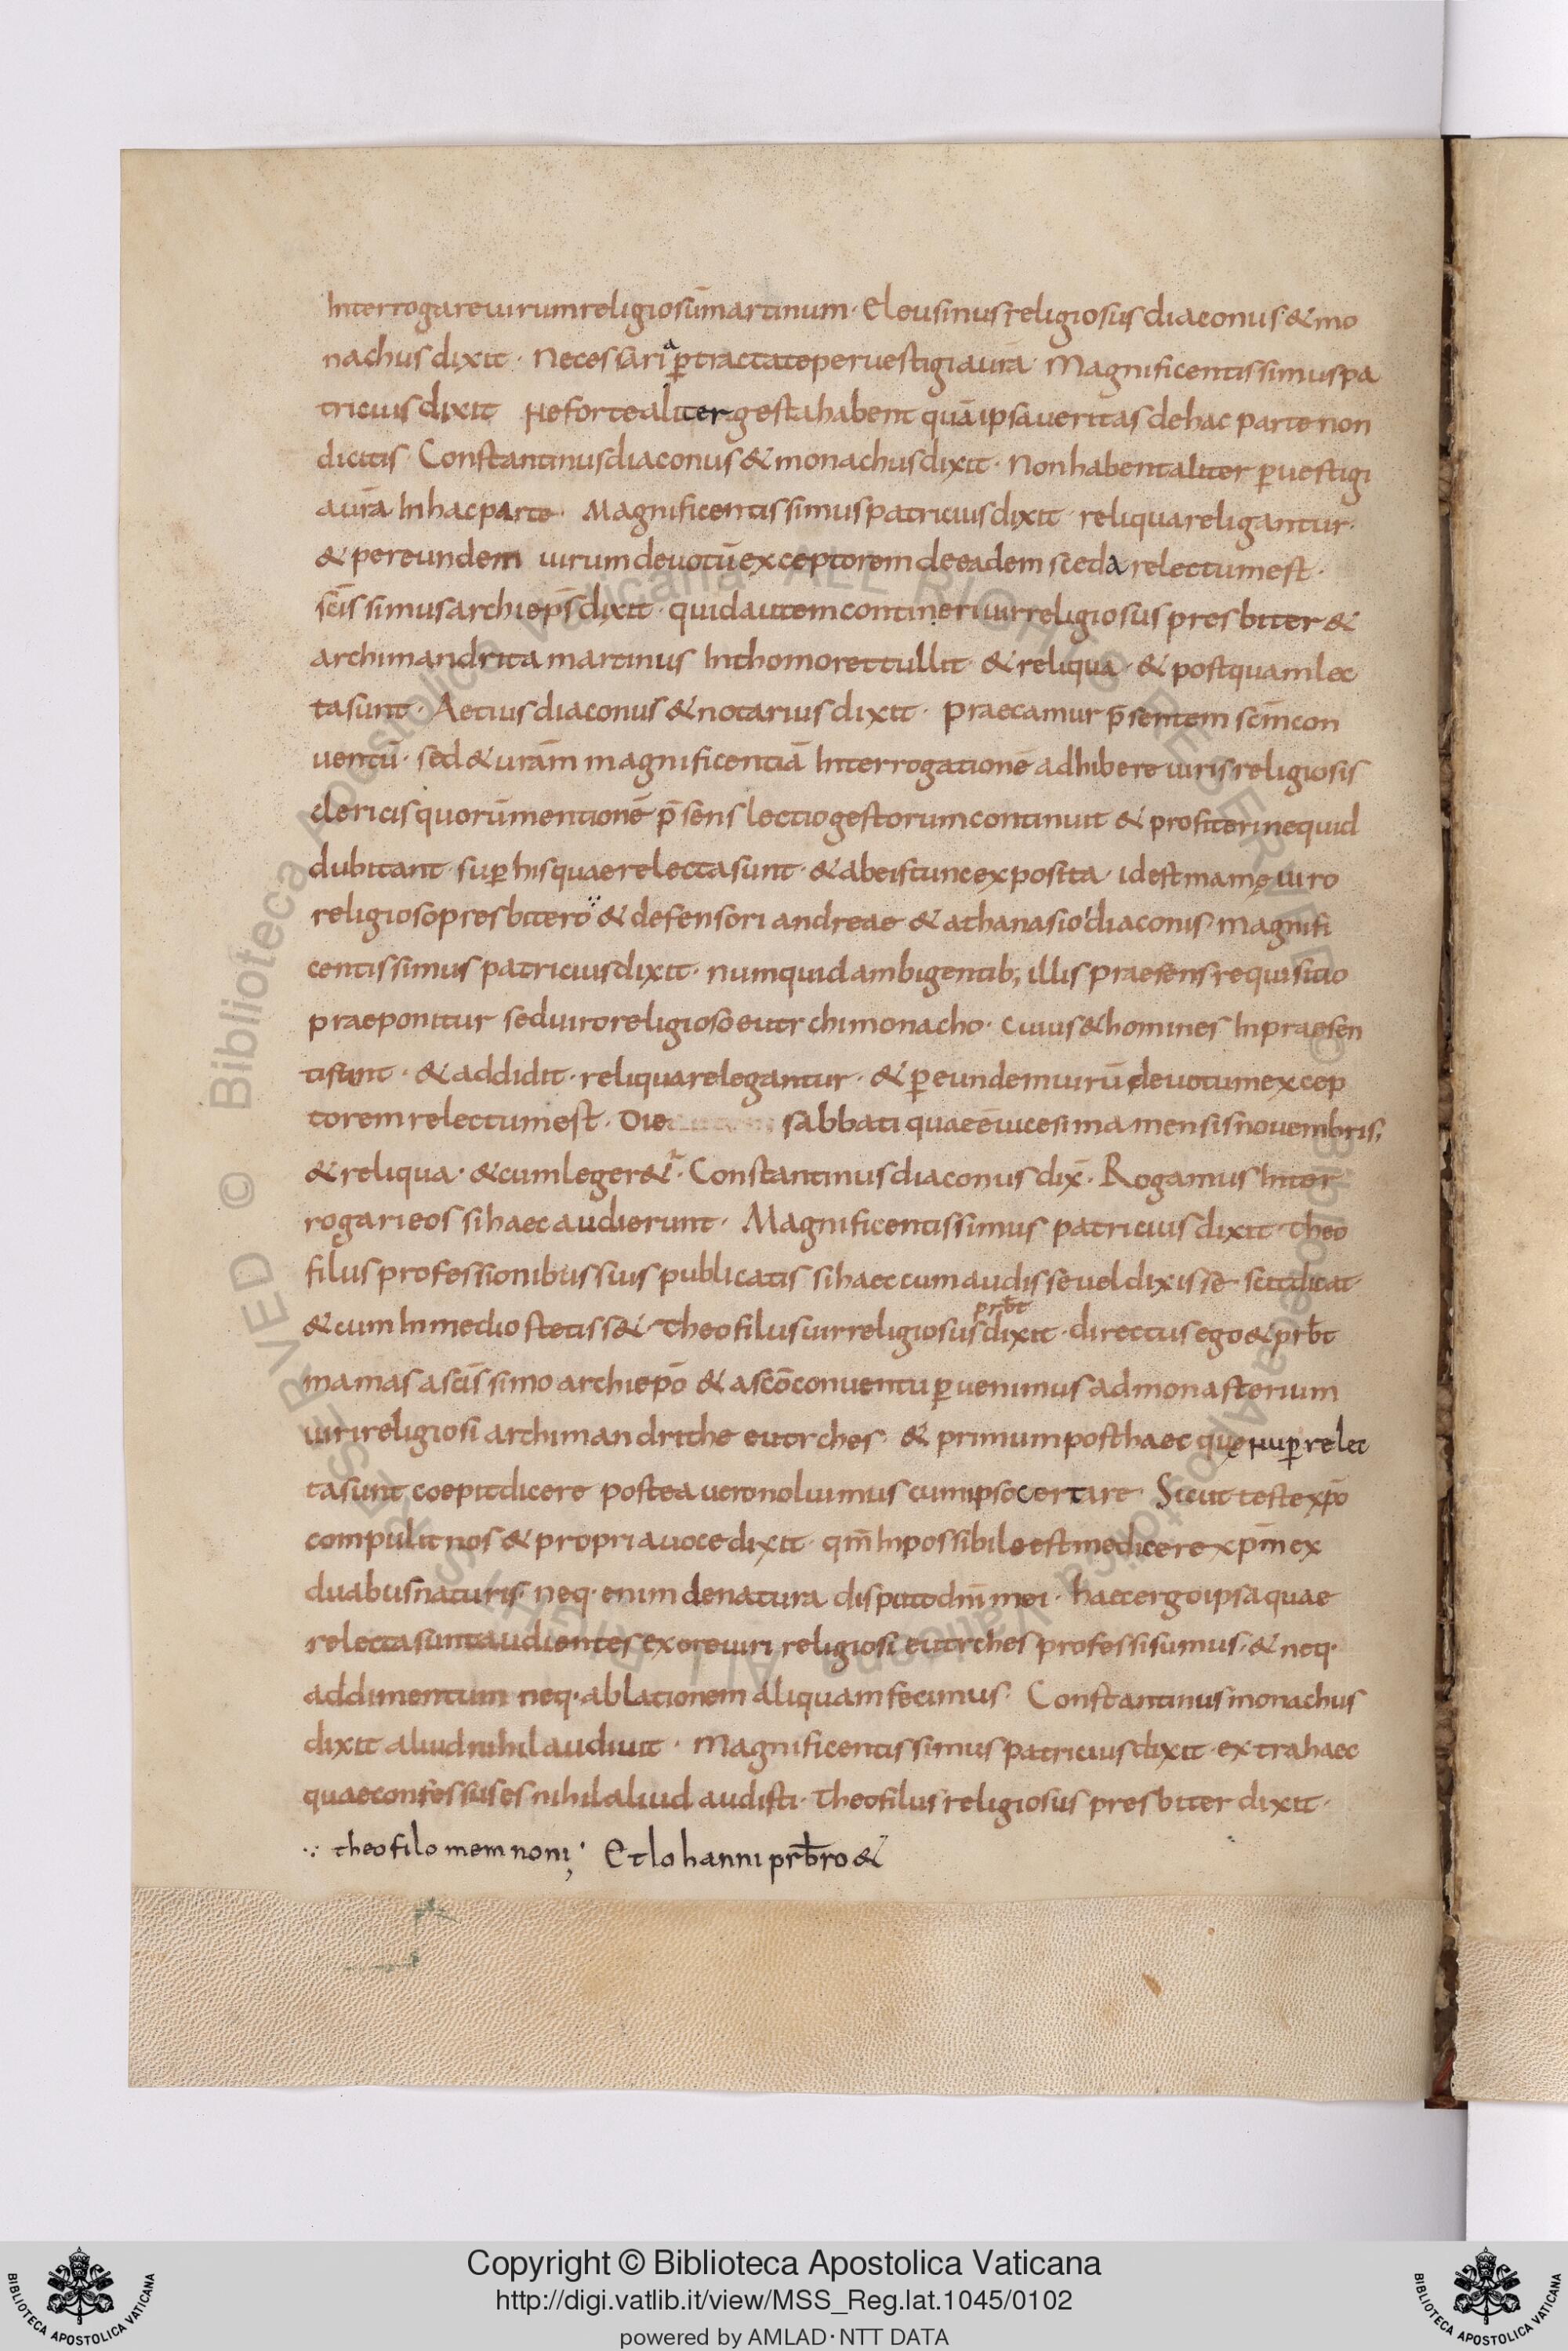 Interrogare uirum religiosū martinum · Eleusinus religiosus diaconus · & mo
nachus dixit · Necessaria ꝑtractate per uestigia uīa · Magnificentissimus pa
tricius dixit Ne forte aliter gesta habent quā ipsa ueritas de hac parte non
dicitis · Constantinus diaconus & monachus dixit · Non habent aliter ꝑ uestigi
a uīa In hac parte · Magnificentissimus patricius dixit · reliqua religantur ·
& per eundem uirum deuotū exceptorem de eadem sceda relectum est ·
sc̄issimus archieps̄ dixit · quid autem contineri uir religiosus presbiter &
archimandrita martinus In thomo rettullit · & reliqua · & postquam lec
ta sunt · Aetius diaconus & notarius dixit · praecamur p̄sentem scm̄ con
uentū · sed & urām magnificentiā Interrogationē adhibere uiris religiosis
clericis quorū mentionē p̄sens lectio gestorum continuit & profiteri ne quid
dubitant · suꝑ his quae relecta sunt · & ab eis tunc exposita · id est mamę uiro
religioso presbitero ∵ & defensori andreae & athanasio diaconis · magnifi
centissimus patricius dixit · numquid ambigentib; illis praesens requisitio
praeponitur sed uiro religioso eutrchi monacho · cuius & homines In praesen
ti sunt · & addidit · reliqua relegantur · & ꝑ eundem uirū deuotum excep
torem relectum est · Die sabbati quae ē uicesima mensis nouembris;
& reliqua · & cum leger&ur · Constantinus diaconus dix̄ · Rogamus Inter
rogari eos si haec audierunt · Magnificentissimus patricius dixit · Theo
filus professionibus suis publicatis si haec cum audisse uel dixisse scit dicat ·
prb̄t
& cum In medio stetiss& Theofilus uir religiosus dixit · directus ego & prb̄t
mamas a sc̄issimo archiepō & a scō conuentu ꝑuenimus ad monasterium
uiri religiosi archimandrithe eutrches · & primum post haec quę nuꝑ relec
ta sunt coepit dicere postea uero noluimus cum ipso certare Sicut teste xp̄o
compulit nos & propria uoce dixit · qm̄ Inpossibile est me dicere xpm̄ ex
duabus naturis · neq · enim de natura disputo dn̄i mei · haec ergo ipsa quae
relecta sunt audientes ex ore uiri religiosi eutrches professi sumus · & neq ·
addimentum neq · ablationem aliquam fecimus · Constantinus monachus
dixit aliud nihil audiuit · Magnificentissimus patricius dixit · extra haec
quae confessus es nihil aliud audisti · Theofilus religiosus presbiter dixit ·
∵ theofilo memnoni; Et Iohanni prb̄ro &
Copyright © Biblioteca Apostolica Vaticana
http://digi.vatlib.it/view/MSS_Reg.lat.1045/0102
powered by AMLAD·NTT DATA